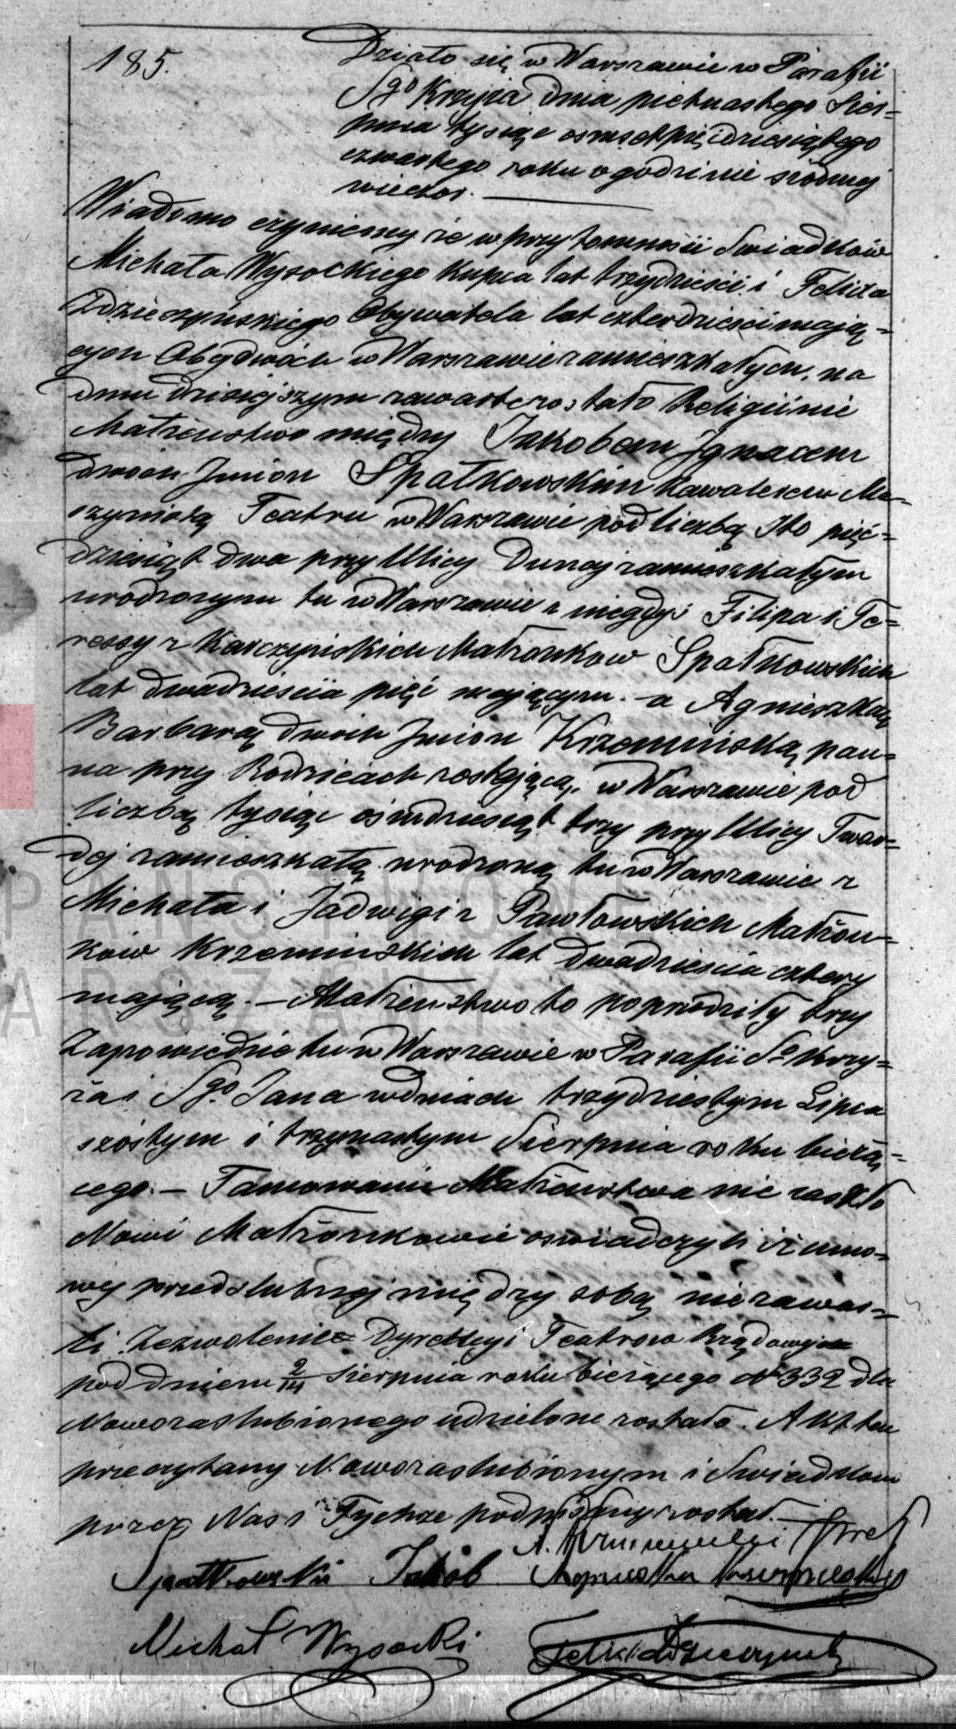 185.
Działo się w Warszawie w Parafii
Sgo Krzyża dnia piętnastego Sier=
pnia tysiąc osmset pięćdziesiątego
czwartego roku o godzinie siódmej
wieczor.
Wiadomo czyniemy że w przytomności Swiadków
Michała Wysockiego Kupca lat trzydzieści i Felixa
Zdzieszyńskiego Obywatela lat czterdzieści mają=
cych Obydwóch w Warszawie zamieszkałych, na
dniu dzisiejszym zawarte zostało Religijnie
Małżeństwo między Jakobem Ignacem
dwóch Imion Spałkowskim Kawalerem Ma=
szynistą Teatru w Warszawie pod liczbą Sto pięć=
dziesiąt dwa przy Ulicy Dunaj zamieszkałym
urodzonym tu w Warszawie z niegdyś Filipa i Te=
ressy z Karczyńskich Małżonkow Spałkowskich
lat dwadzieścia pięć mającym. – a Agnieszką
Barbarą dwóch Imion Krzemińską, pan=
na przy Rodzicach zostającą, w Warszawie pod
liczbą tysiąc ośmdziesiąt trzy przy Ulicy Twar=
dej zamieszkałą urodzoną tu w Warszawie z
Michała i Jadwigi z Pawłowskich Małżon=
ków Krzemińskich lat dwadzieścia cztery
mającą. – Małżeństwo to poprzedziły trzy
Zapowiedzie tu w Warszawie w Parafii So Krzy=
ża i Sgo. Jana w dniach trzydziestym Lipca
szóstym i trzynastym Sierpnia roku bieżą=
cego. – Tamowanie Małżeństwa nie zaszło
Nowi Małżonkowie oświadczyli iż umo=
wy przedślubnej między sobą nie zawar=
li Zezwolenie Dyrekcyi Teatrow Rządowych
pod dniem 2/14 Sierpnia roku bieżącego No 332 dla
Nowozaslubionego udzielone zostało. Akt ten
przeczytany Nowozaslubionym i Swiadkom
przez Nas i Tychże podpisany został. –
Spałkowski Jakób Agnieszka Krzemińska
Michał Wysocki
PAŃSTWOWE
WARSZAWY